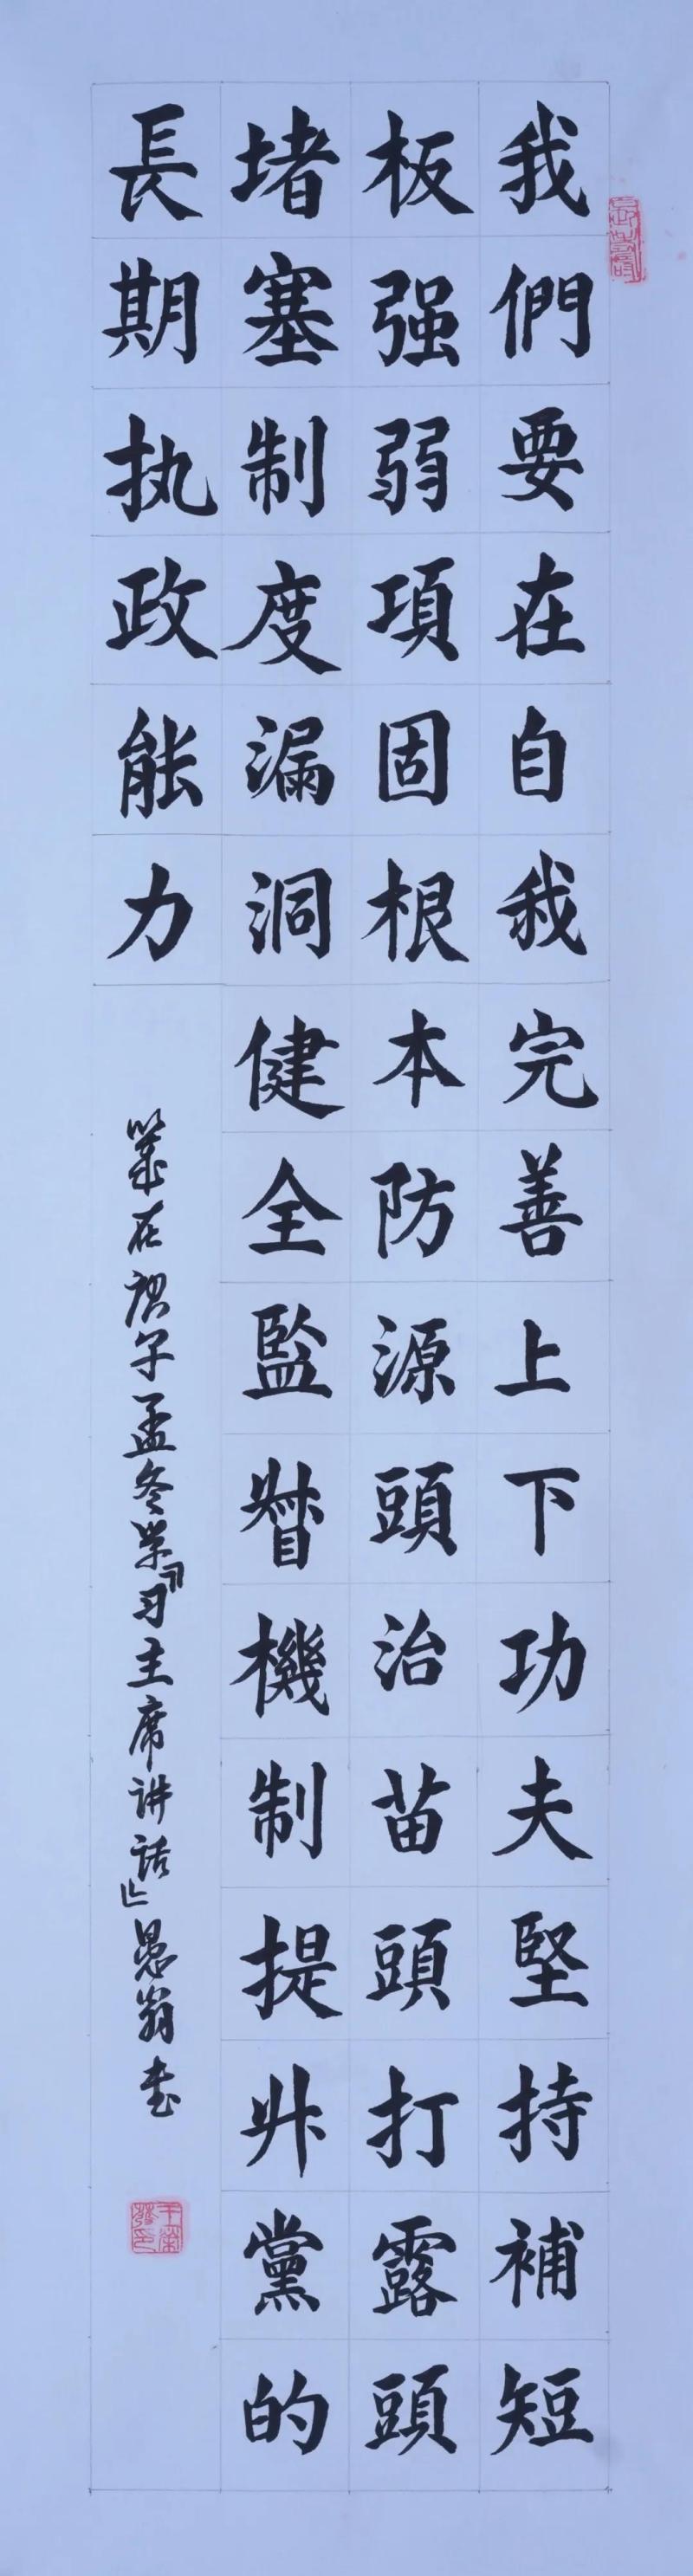 我們要在自我完善上下功夫堅持補短
板强弱項固根本防源頭治苗頭打露頭
堵塞制度漏洞健全監督機制提升黨的
長期执政能力
歲在庚子孟冬学『习主席讲话』愚翁书